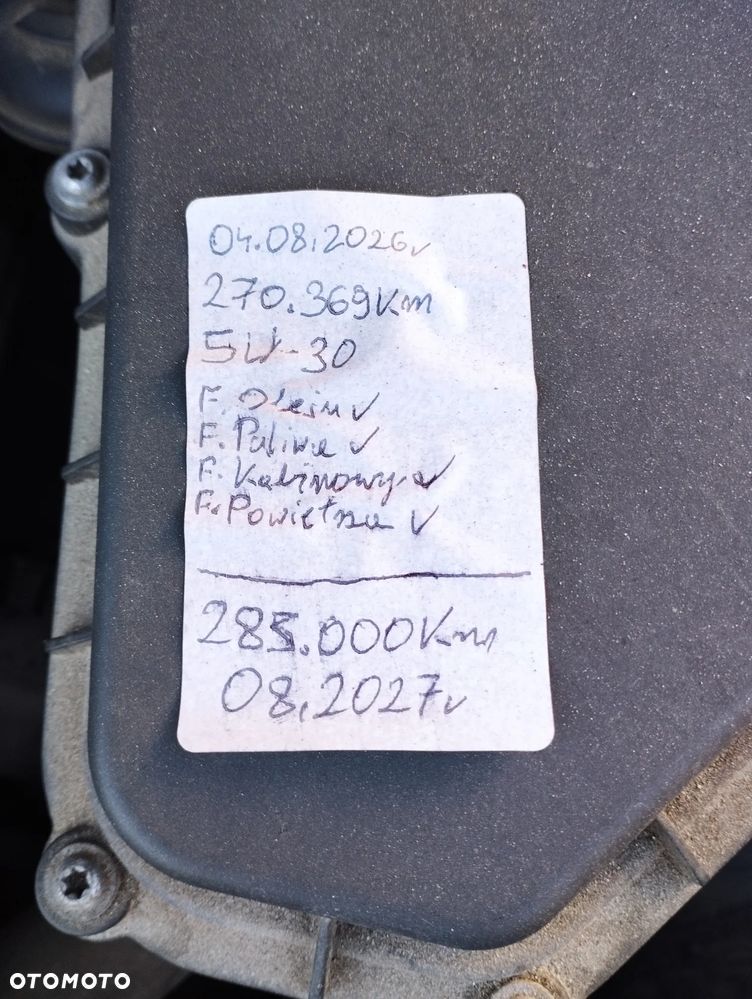 04.08.2026r
270.369Km
5W-30
F. Oleju ✓
F. Paliwa ✓
F. Kabinowy ✓
F. Powietrza ✓
285.000Km
08.2027r
OTOMOTO